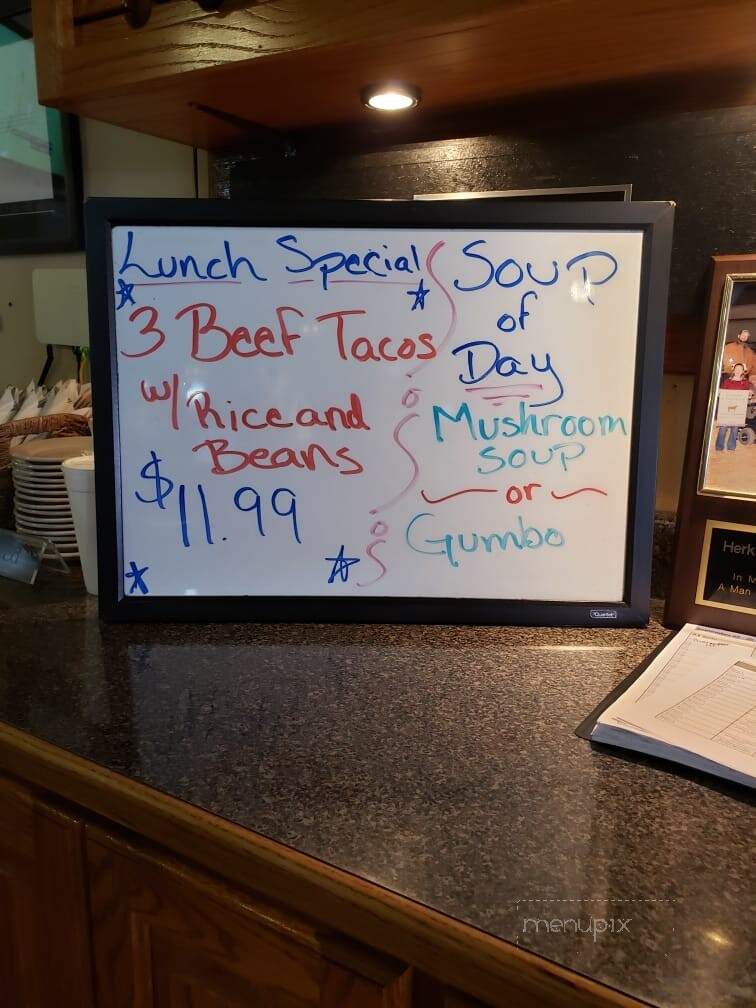 Lunch Special
3 Beef Tacos
w/ Rice and
Beans
$11.99
Soup
of
Day
Mushroom
Soup
or
Gumbo
Quartet
Herk
In M
A Man
menupix